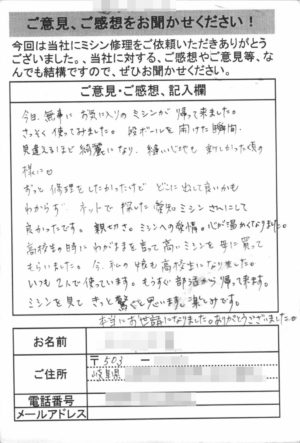 ご意見、ご感想をお聞かせください！
今回は当社にミシン修理をご依頼いただきありがとう
ございました。、当社に対する、ご感想やご意見等、な
んでも結構ですので、ぜひお聞かせください。
ご意見・ご感想、記入欄
今日、無事に お気に入りのミシンが 帰って来ました。
さっそく使ってみました。段ボールを開けた瞬間、
見違えるほど 綺麗になり、縫い心地も
様に
ずっと 修理をしたかったけど どこに出して良いかも
わからず ネットで 探した 愛知ミシンさんにして
良かったです。親切さ。ミシンへの愛情。心が温かくなりました。
高校生の時に わがままを言って 高いミシンを 母に買って
もらいました。今、私の娘も 高校生になりました。
いつも2人で使っています。もうすぐ 部活から帰って来ます。
ミシンを見て きっと 驚くと思います。楽しみです。
本当にお世話になりました。ありがとうございました。
お名前
ご住所
〒503 －
岐阜県
電話番号
メールアドレス